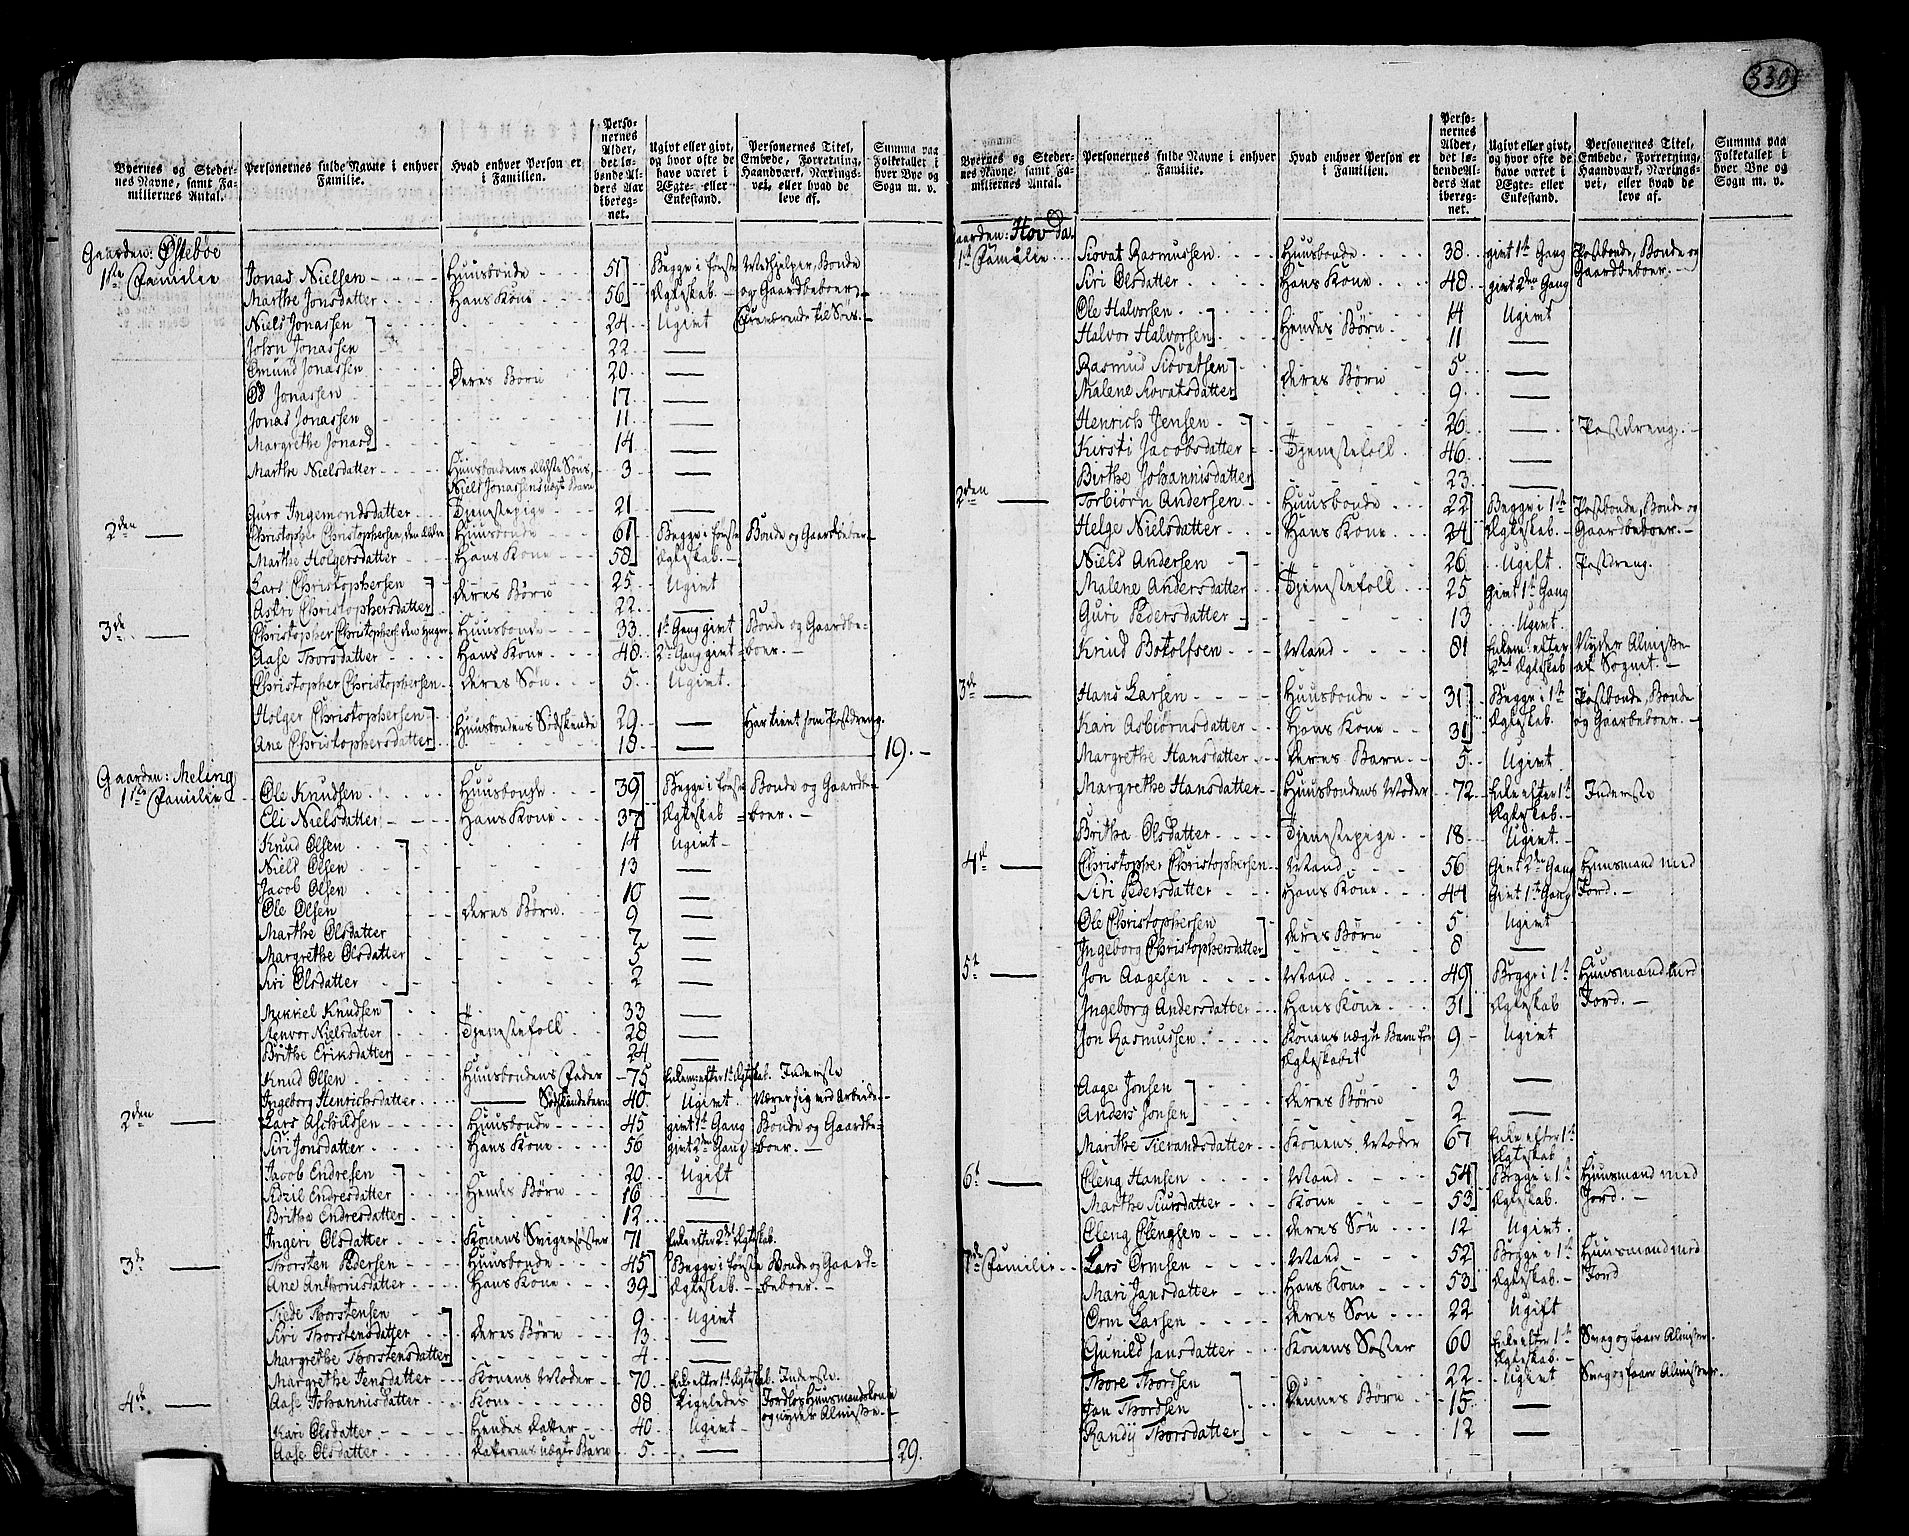 Byernes og Stedernes Navne, samt Familiernes Antal.
Personernes fulde Navne i enhver Familie.
Hvad enhver Person er i Familien.
Personernes Alder, det løbende Alders Aar iberegnet.
Ugivt eller givt, og hvor ofte de have været i Ægte- eller Enkestand.
Personernes Titel, Embede, Forretning, Haandværk, Næringsvei, eller hvad de leve af.
Summa paa Folketallet i hver Bye og Sogn m. v.
Gaarden: Østebøe
1ste Familie Jonas Nielsen Huusbonde 51 Begge i første Medhjelper, Bonde
Marthe Jonsdatter Hans Kone 56 Ægteskab. og Gaardbeboer
Niels Jonassen 24 Ugivt
John Jonassen 22
Omund Jonassen 20
Deres Børn
Jonassen 17
Jonas Jonassen 11
Margrethe Jonasd 14
Marthe Nielsdatter Huusbondens ældste Søns, 3
Niels Jonassens uægte Barn
Guro Ingemondsdatter Tjenestepige 21
2den Christopher Christophersen, den ældre Huusbonde 61 Begge i første Bonde og Gaardbeboer
Marthe Holgersdatter Hans Kone 58 Ægteskab.
Lars Christophersen 25 Ugivt
Deres Børn
Astri Christophersdatter 22
3de Christopher Christophers. den yngre Huusbonde 33 1te Gang givt Bonde og Gaardbe-
Aase Thorsdatter Hans Kone 48 2den Gang givt boer.
Christopher Christophersen Deres Søn 5 Ugivt.
Holger Christophersen 29 Har tient som Postdreng.
Huusbondens Sødskende
Ane Christophersdatter 18 19.
Gaarden: Meling
1ste Familie Ole Knudsen Huusbonde 39 Begge i første Bonde og Gaardbe-
Eli Nielsdatter Hans Kone 37 Ægteskab boer.
Knud Olsen 14 Ugivt
Niels Olsen 13
Jacob Olsen 10
Ole Olsen Deres Børn. 9
Marthe Olsdatter 7
Margrethe Olsdatter 5
Siri Olsdatter 2
Mikkel Knudsen 33
Aenvor Nielsdatter Tjenestefolk 28
Brithe Eriksdatter 24
Knud Olsen Huusbondens Fader 75 Enkem: efter 1te Ægtskab. Inderste
Ingeborg Henrichsdatter Sødskendebarn 40 Ugivt. Nærer sig ved Arbeide
2den Lars Aschildsen Huusbonde 45 givt 1te Gang Bonde og Gaardbe-
Siri Jonsdatter Hans Kone 56 givt 2den Gang boer.
Jacob Endresen 20 Ugift
Sidzil Endresdatter Hendes Børn 16
Britha Endresdatter 12
Ingeri Olsdatter Konens Svigersøster 71 Enke efter 2det Ægteskab.
3de Thorsten Pedersen Huusbonde 45 Begge i første Bonde og Gaard-
Ane Anthonisdatter Hans Kone 39 Ægteskab. beboer.
Tjede Thorstensen 9 Ugivt
Siri Thorstensdatter Deres Børn 13
Margrethe Thorstensdatter 4
Margrethe Jensdatter Konens Moder 70 Enke efter 1te Ægteskab. Inderste.
4de Aase Johannisdatter Kone 88 Ligeledes Jordløs Huusmandskone
og nyder Almisse.
Kari Olsdatter Hendes Datter 40 Ugivt
Aase Olsdatter Datterens uægte Barn 5 29.
339
Byernes og Stedernes Navne, samt Familiernes Antal.
Personernes fulde Navne i enhver Familie.
Hvad enhver Person er i Familien.
Personernes Alder, det løbende Alders Aar iberegnet.
Ugivt eller givt, og hvor ofte de have været i Ægte- eller Enkestand.
Personernes Titel, Embede, Forretning, Haandværk, Næringsvei, eller hvad de leve af.
Summa paa Folketallet i hver Bye og Sogn m. v.
Gaarden: Hovda.
1te Familie Siovat Rasmussen Huusbonde 38 givt 1te Gang Postbonde, Bonde og
Siri Olsdatter Hans Kone 48 givt 2den Gang Gaardbeboer.
Ole Halvorsen 14 Ugivt
Hendes Børn
Halvor Halvorsen 11
Rasmus Siovatsen 5
Deres Børn
Malene Siovatsdatter 9
Henrich Jensen 26 Postdreng.
Kirsti Jacobsdatter Tjenestefolk 46
Birthe Johannisdatter 23
2den Torbiørn Andersen Huusbonde 22 Begge i 1te Postbonde, Bonde og
Helge Nielsdatter Hans Kone 24 Ægteskab. Gaardbeboer.
Niels Andersen 26 Ugift Postdreng.
Malene Andersdatter Tjenestefolk 25 givt 1te Gang
Guri Pedersdatter 13 Ugivt
Knud Botolfsen Mand 81 Enkem. efter Nyder Almisse
2det Ægteskab af Sognet.
3de Hans Larsen Huusbonde 31 Begge i 1te Postbonde, Bonde
Kari Asbiørnsdatter Hans Kone 31 Ægteskab. og Gaardbeboer.
Margrethe Hansdatter Deres Barn 5 Ugivt
Margrethe Hansdatter Huusbondens Moder 72 Enke efter 1te Inderste
Ægteskab.
Britha Olsdatter Tjenestepige 18 Ugivt.
4de Christopher Christophersen Mand 56 Givt 2den Gang Huusmand med
Siri Pedersdatter Hans Kone 44 Givt 1te Gang Jord.
Ole Christophersen 5 Ugivt
Deres Børn
Ingeborg Christophersdatter 8
5te Jon Aagesen Mand 49 Begge i 1te Huusmand med
Ingeborg Andersdatter Hans Kone 31 Ægteskab Jord.
Jon Rasmussen Konens uægte Barn før 9 Ugivt
Ægteskabet
Aage Jonsen 3
Deres Børn
Anders Jonsen 2
Marithe Tierandsdatter Konens Moder 67 Enke efter 1te
Ægteskab
6te Eleng Hansen Mand 54 Begge i 1te Huusmand med
Marthe Siursdatter Kone 53 Ægteskab. Jord.
Eleng Elengsen Deres Søn 12 Ugivt.
7de Familie Lars Ormsen Mand 52 Begge i 1te Huusmand med
Mari Jansdatter Hans Kone 53 Ægteskab. Jord
Orm Larsen Deres Søn 22 Ugift
Gunild Jansdatter Konens Søster 60 Enke efter 1te Svag og faaer Almisse.
Ægteskab.
Thore Thordsen 22 Ugivt Svag og faaer Almisse.
Jan Thordsen Dennes Børn 15
Randij Thorsdatter 12